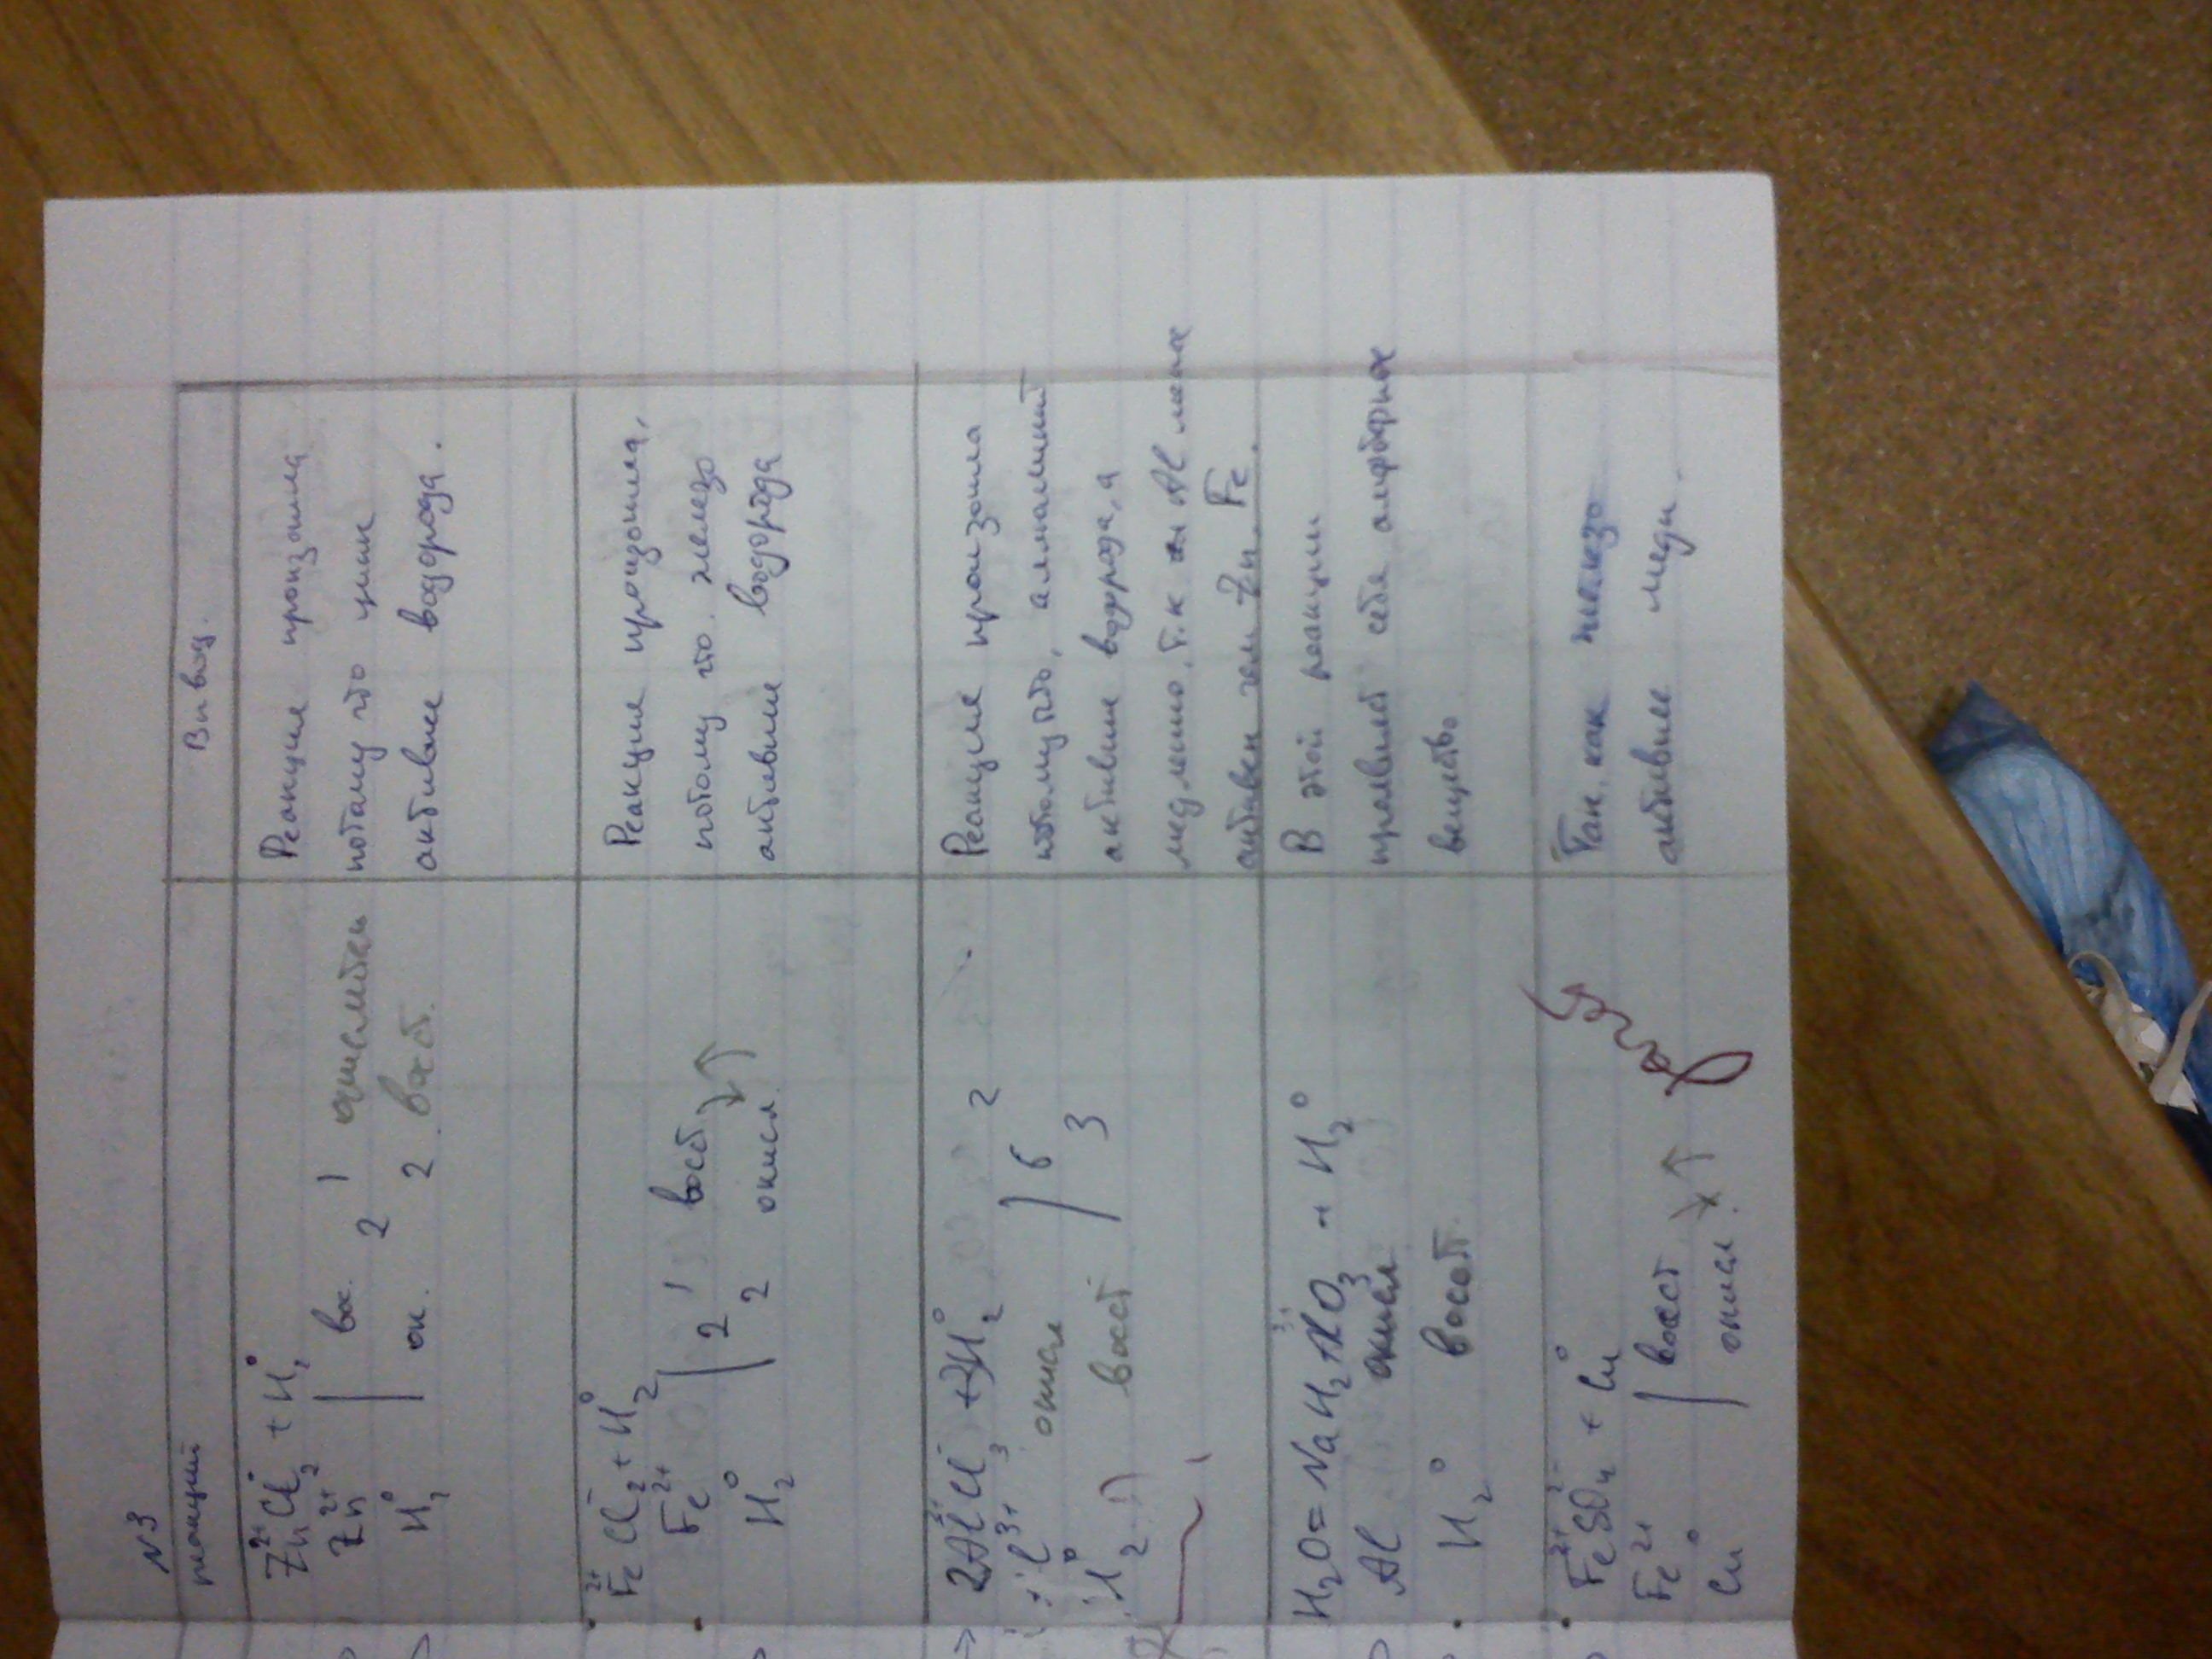 N3
реакций
Вывод.
Zn²⁺Cl₂⁻ + H₂⁰
Zn²⁺ | вос. 2 1 окислител
H₂⁰ | ок. 2 2 вост.
Реакция произошла
потому что цинк
активнее водорода.
Fe²⁺Cl₂⁻ + H₂⁰
Fe²⁺ | 2 1 вост.
H₂⁰ | 2 2 окисл.
Реакция произошла,
потому что железо
активнее водорода
2Al³⁺Cl₃⁻ + 3H₂⁰
окисл | 6 2
H₂⁰ вост | 3
Реакция произошла
потому что, алюминий
активнее водорода, а
медленно, т.к Al менее
активен чем Zn. Fe.
H₂O = NaH₂AlO₃ + H₂⁰
Al окисл
H₂⁰ восст.
В этой реакции
проявил себя амфотерное
вещество
Fe²⁺SO₄²⁻ + Cu⁰
Fe²⁺ | восст
Cu⁰ | окисл.
Так как железо
активнее меди.